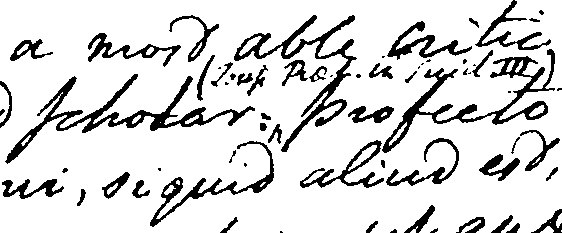 a most able critic
(Toup Præf. in Suid III)
Scholar: profecto
ui, siquid aliud est,